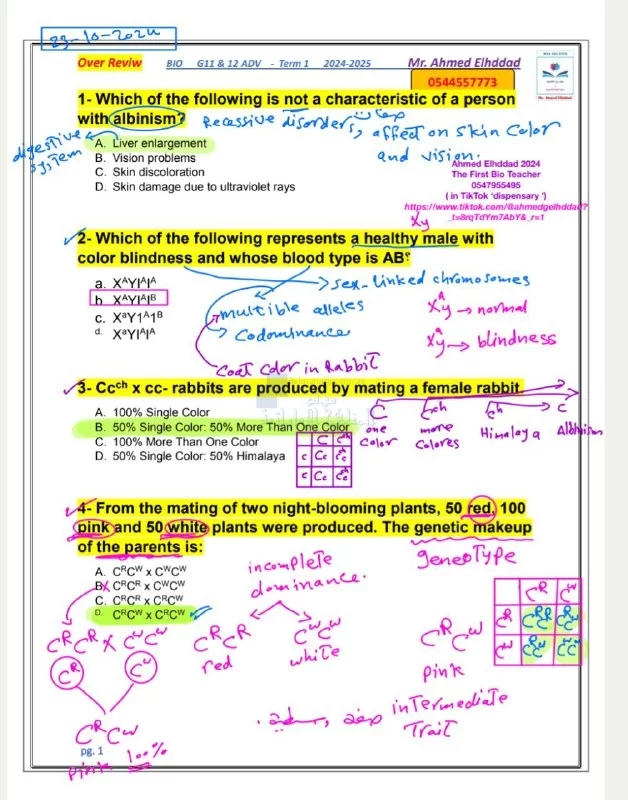 23-10-2024
Over Reviw BIO G11 & 12 ADV - Term 1 2024-2025 Mr. Ahmed Elhddad
0544557773
Mr. Ahmed Elhddad
1- Which of the following is not a characteristic of a person
with albinism?
Recessive disorders, affect on skin color
and vision.
digestive
system
A. Liver enlargement
B. Vision problems
C. Skin discoloration
D. Skin damage due to ultraviolet rays
Ahmed Elhddad 2024
The First Bio Teacher
0547955495
( in TikTok 'dispensary ')
https://www.tiktok.com/@ahmedgelhddad?
_t=8rqTdYm7AbY&_r=1
Xy
2- Which of the following represents a healthy male with
color blindness and whose blood type is AB?
a. XᴬYIᴬIᴬ
b. XᴬYIᴬIᴮ
c. XᵃY1ᴬ1ᴮ
d. XᵃYIᴬIᴬ
sex-linked chromosomes
multible alleles
Codominance
Coat Color in Rabbit
Xᴬy → normal
Xᵃy → blindness
3- Ccᶜʰ x cc- rabbits are produced by mating a female rabbit.
A. 100% Single Color
B. 50% Single Color: 50% More Than One Color
C. 100% More Than One Color
D. 50% Single Color: 50% Himalaya
C
one
Color
Cch
more
Colores
Himalaya
c
Albinism
C Cch
c Cc
c Cc
4- From the mating of two night-blooming plants, 50 red, 100
pink and 50 white plants were produced. The genetic makeup
of the parents is:
A. CᴿCᵂ x CᵂCᵂ
B. CᴿCᴿ x CᵂCᵂ
C. CᴿCᴿ x CᴿCᵂ
D. CᴿCᵂ x CᴿCᵂ
incomplete
dominance.
genotype
CᴿCᴿ x CᵂCᵂ
Cᴿ Cᵂ
CᴿCᵂ
pink 100%
CᴿCᴿ
red
CᵂCᵂ
white
CᴿCᵂ
pink
intermediate
Trait
Cᴿ Cᵂ
Cᴿ CᴿCᴿ CᴿCᵂ
Cᵂ CᴿCᵂ CᵂCᵂ
pg. 1